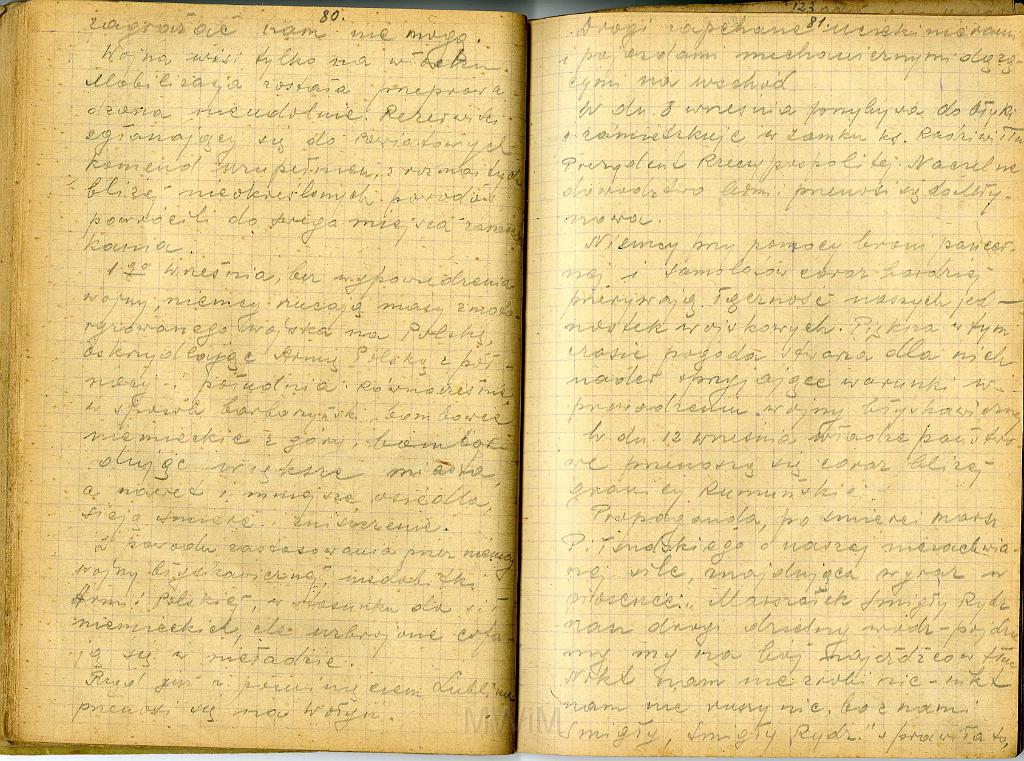 80.
zagrażać nam nie mogą.
Wojna wisi tylko na włosku.
Mobilizacja została przeprowa-
dzona nieudolnie. Rezerwiści
zgłaszający się do powiatowych
komend uzupełnień, z rozmaitych
bliżej nieokreślonych powodów,
powrócili do swego miejsca zamiesz
kania.
1 go września, bez wypowiedzenia
wojny, niemcy rzucają masy zmoto-
ryzowanego wojska na Polskę,
oskrzydlając Armję Polską z pół-
nocy i południa równocześnie
w sposób barbarzyński, bombowce
niemieckie z góry, bombar-
dując większe miasta,
a nawet i mniejsze osiedla,
sieją śmierć i zniszczenie.
Z powodu zastosowania przez niemcy
wojny błyskawicznej, niedobitki
Armii Polskiej, w stosunku do sił
niemieckich, źle uzbrojone cofa-
ją się w nieładzie.
Rząd już z Lublina
przenosi się na Wołyń.
123
81.
Drogi zapchane uciekinierami
i pojazdami mechanicznymi dążą-
cymi na wschód
W dn 8 września przybywa do Ołyki
i zamieszkuje w zamku ks. Radziwiłła
Prezydent Rzeczypospolitej. Naczelne
dowództwo przenosi się
nowa.
Niemcy przy pomocy broni pancer-
nej i samolotów coraz bardziej
przerywają łączność naszych jed-
nostek wojskowych. Piękna w tym
czasie pogoda stwarza dla nich
nader sprzyjające warunki w
prowadzeniu wojny błyskawicznej
W dn 12 września władze państwo
we przenoszą się coraz bliżej
granicy Rumuńskiej.
Propaganda, po śmierci marsz
Piłsudskiego o naszej niezachwia-
nej sile, znajdująca wyraz w
piosence: „Marszałek Śmigły Rydz
nasz drogi dzielny wódz - pójdzie
my my na bój najeźdźców tłuc
Nikt nam nie zrobi nic - nikt
nam nie ruszy nic, bo z nami
Śmigły, Śmigły Rydz." sprawiła to,
MWiM